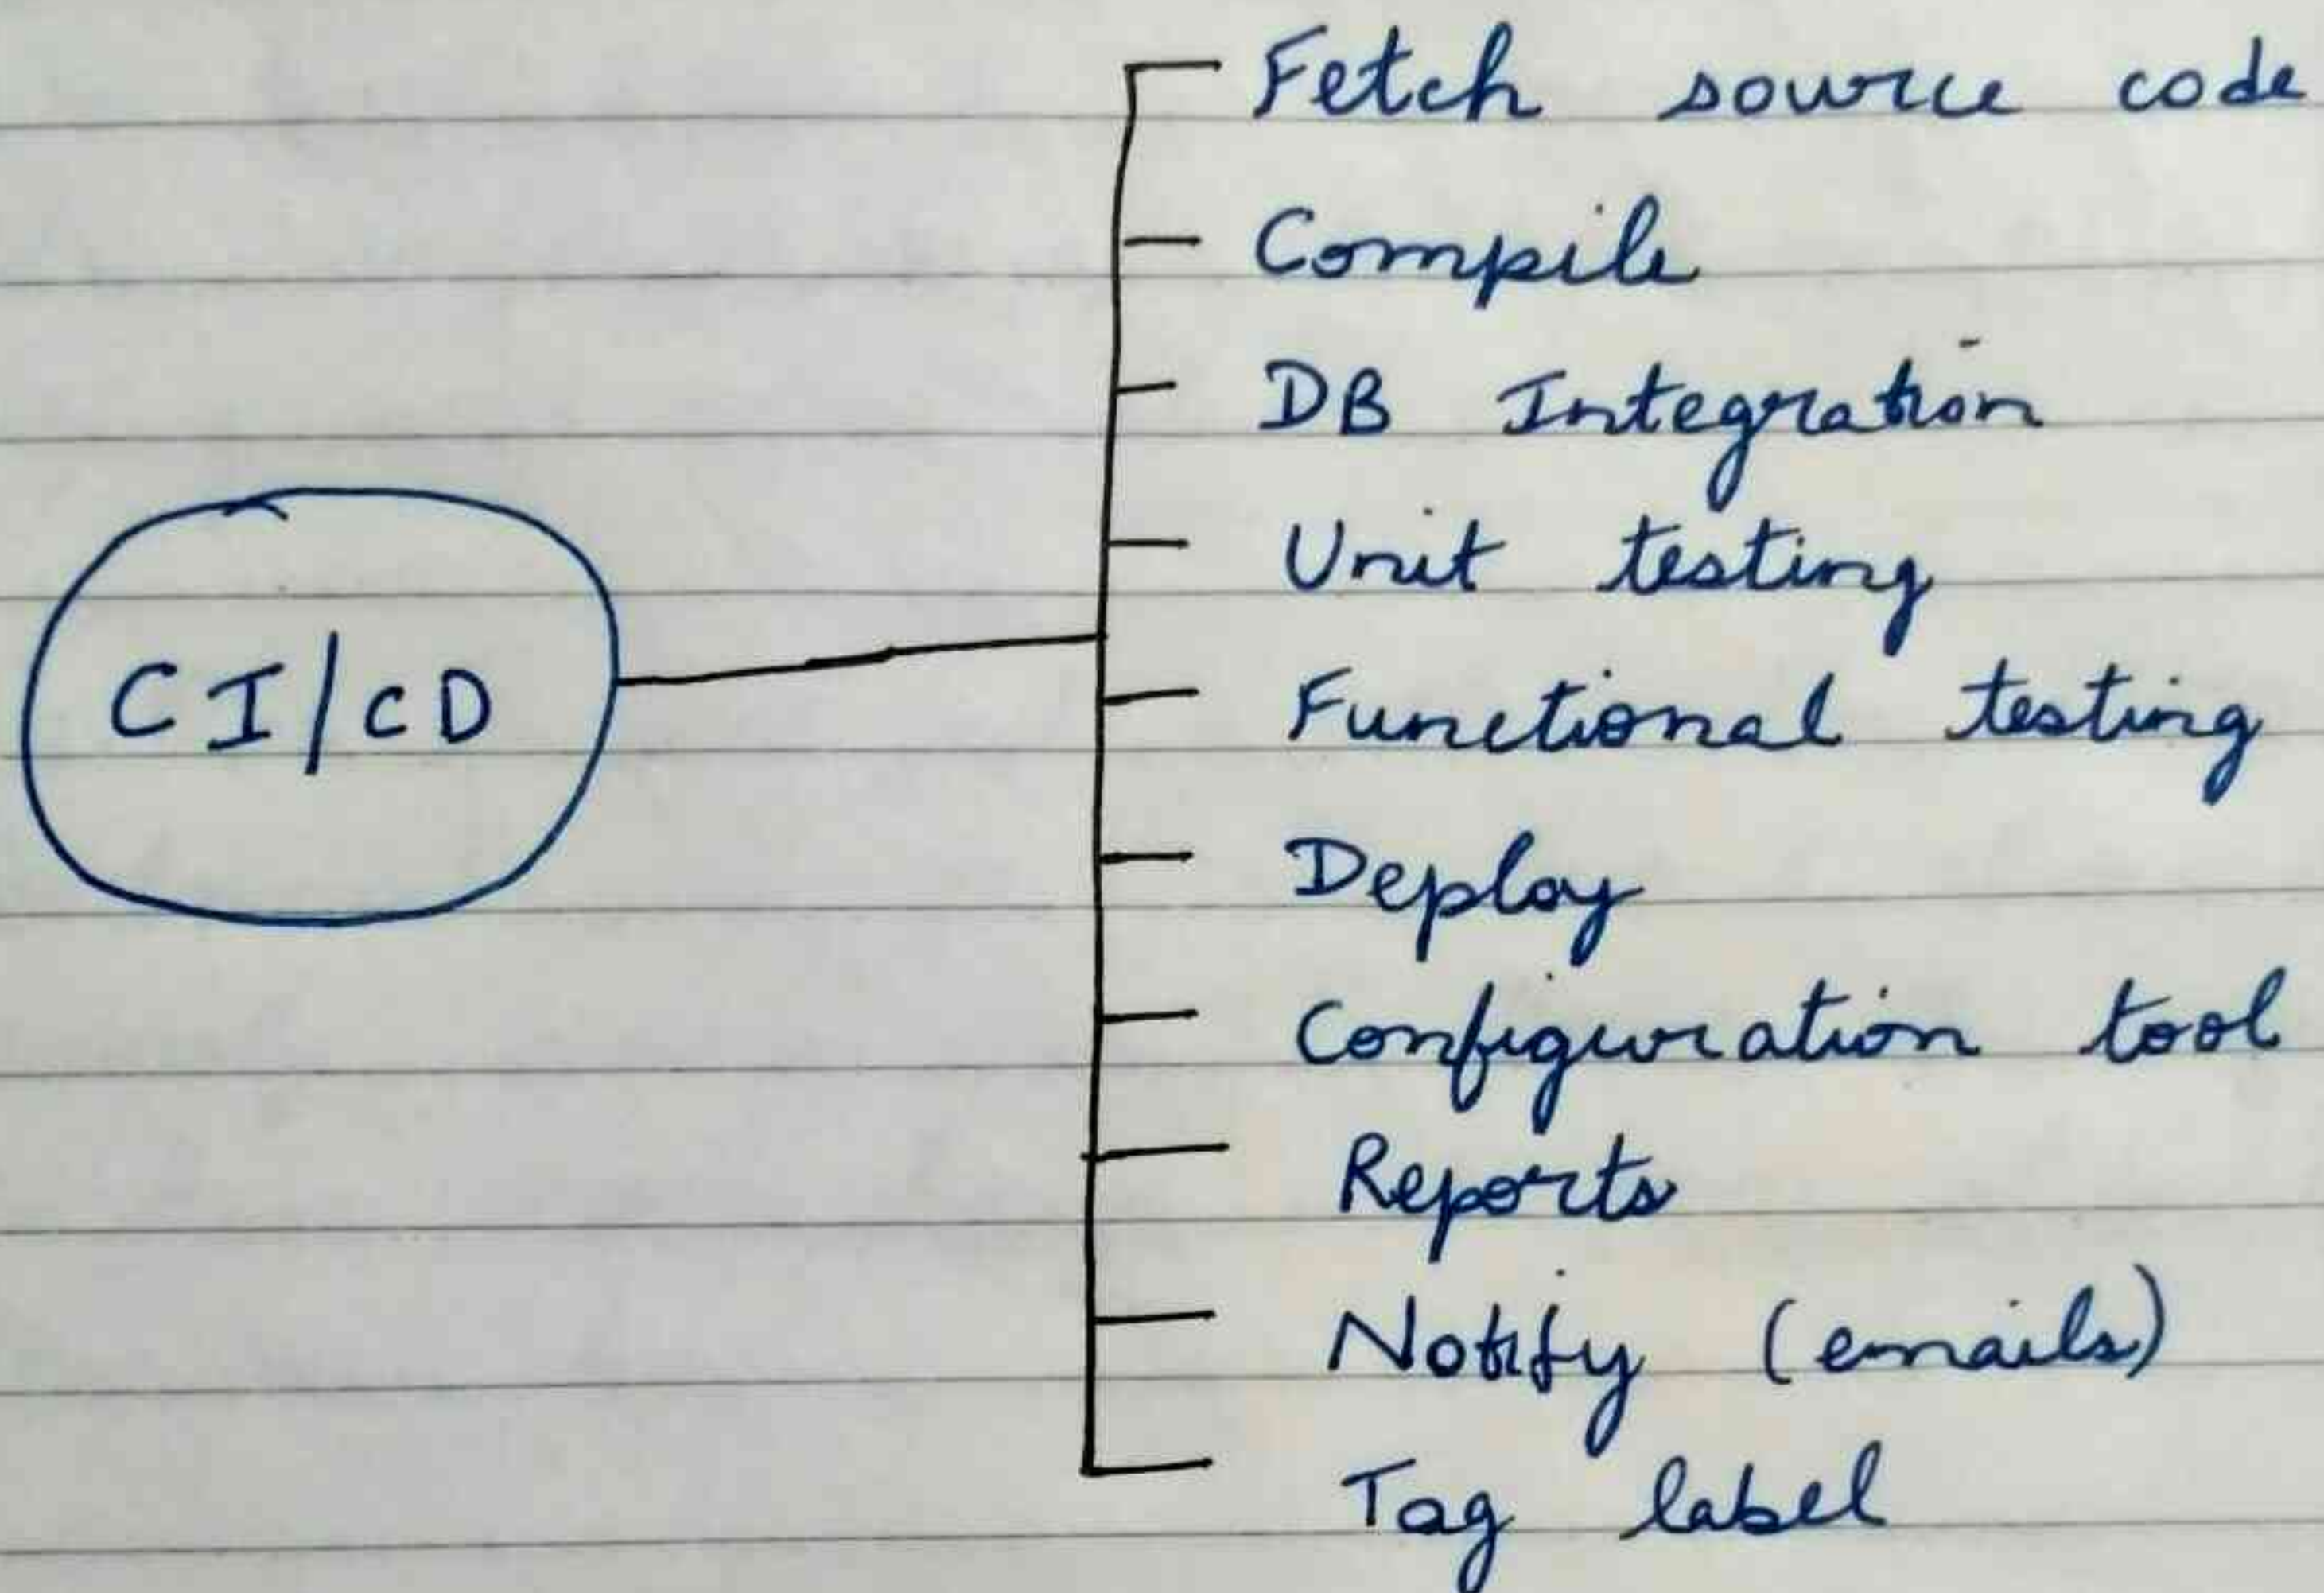 Fetch source code
Compile
DB Integration
Unit testing
CI/CD
Functional testing
Deploy
Configuration tool
Reports
Notify (emails)
Tag label